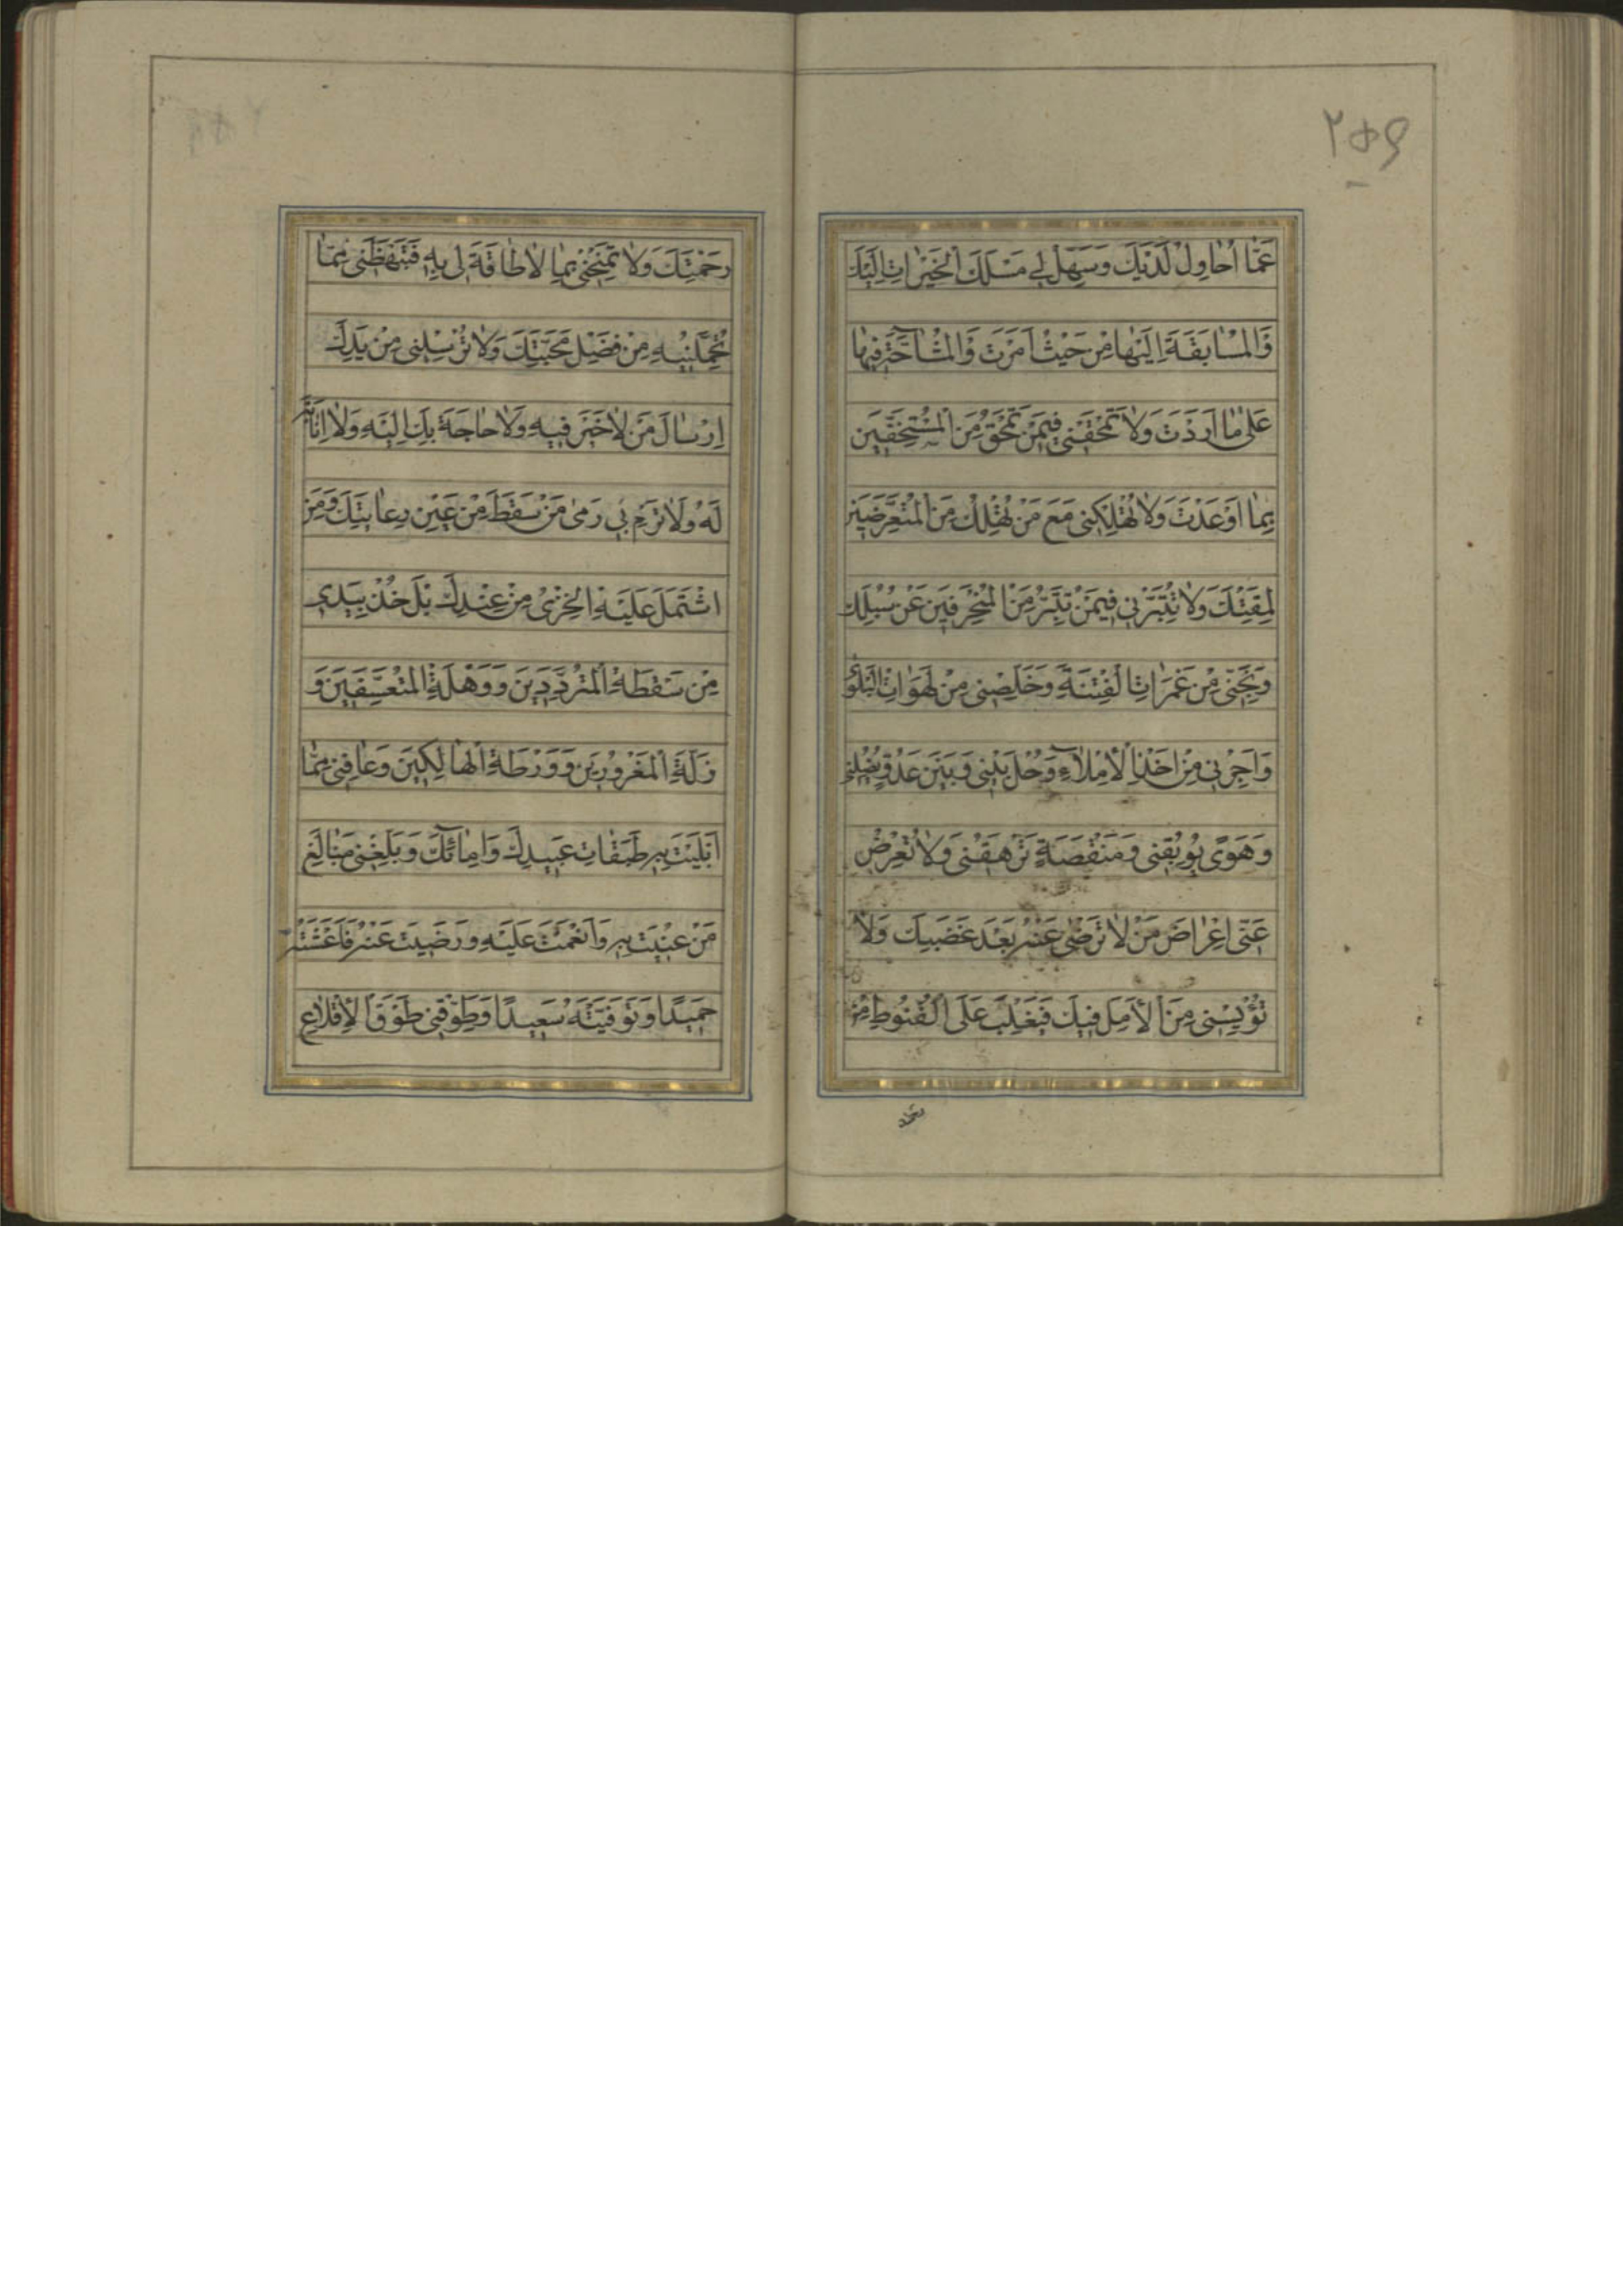 ۲۵۹
عَمَّا اُحاوِلُ لَدَيْكَ وَسَهِّلْ لِي مَسْلَكَ الْخَيْراتِ اِلَيْكَ
وَالْمُسابَقَةَ اِلَيْها مِنْ حَيْثُ اَمَرْتَ وَالْمُشاحَّةَ فيها
عَلى ما اَرَدْتَ وَلا تَمْحَقْني فيمَنْ تَمْحَقُ مِنَ الْمُسْتَخِفّينَ
بِما اَوْعَدْتَ وَلا تُهْلِكْني مَعَ مَنْ تُهْلِكُ مِنَ الْمُتَعَرِّضينَ
لِمَقْتِكَ وَلا تُتَبِّرْني فيمَنْ تُتَبِّرُ مِنَ الْمُنْحَرِفينَ عَنْ سُبُلِكَ
وَنَجِّني مِنْ غَمَراتِ الْفِتْنَةِ وَخَلِّصْني مِنْ لَهَواتِ الْبَلْوى
وَاَجِرْني مِنْ اَخْذِ الْاِمْلاءِ وَحُلْ بَيْني وَبَيْنَ عَدُوٍّ يُضِلُّني
وَهَوًى يُوبِقُني وَمَنْقَصَةٍ تَرْهَقُني وَلا تُعْرِضْ
عَنّي اِعْراضَ مَنْ لا تَرْضى عَنْهُ بَعْدَ غَضَبِكَ وَلا
تُؤْيِسْني مِنَ الْاَمَلِ فيكَ فَيَغْلِبَ عَلَىَّ الْقُنُوطُ مِنْ
رَحْمَتِكَ وَلا تَمْنِحْني بِما لا طاقَةَ لي بِهِ فَتَبْهَظَني مِمّا
تُحَمِّلُنيهِ مِنْ فَضْلِ مَحَبَّتِكَ وَلا تُرْسِلْني مِنْ يَدِكَ
اِرْسالَ مَنْ لا خَيْرَ فيهِ وَلا حاجَةَ بِكَ اِلَيْهِ وَلا اِنابَةَ
لَهُ وَلا تَرْمِ بي رَمْىَ مَنْ سَقَطَ مِنْ عَيْنِ رِعايَتِكَ وَمَنِ
اشْتَمَلَ عَلَيْهِ الْخِزْىُ مِنْ عِنْدِكَ بَلْ خُذْ بِيَدي
مِنْ سَقْطَةِ الْمُتَرَدِّدينَ وَوَهْلَةِ الْمُتَعَسِّفينَ وَ
زَلَّةِ الْمَغْرُورينَ وَوَرْطَةِ الْهالِكينَ وَعافِني مِمَّا
ابْتَلَيْتَ بِهِ طَبَقاتِ عَبيدِكَ وَاِمائِكَ وَبَلِّغْني مَبالِغَ
مَنْ عُنيتَ بِهِ وَاَنْعَمْتَ عَلَيْهِ وَرَضيتَ عَنْهُ فَاَعَشْتَهُ
حَميدًا وَتَوَفَّيْتَهُ سَعيدًا وَطَوِّقْني طَوْقَ الْاِقْلاعِ